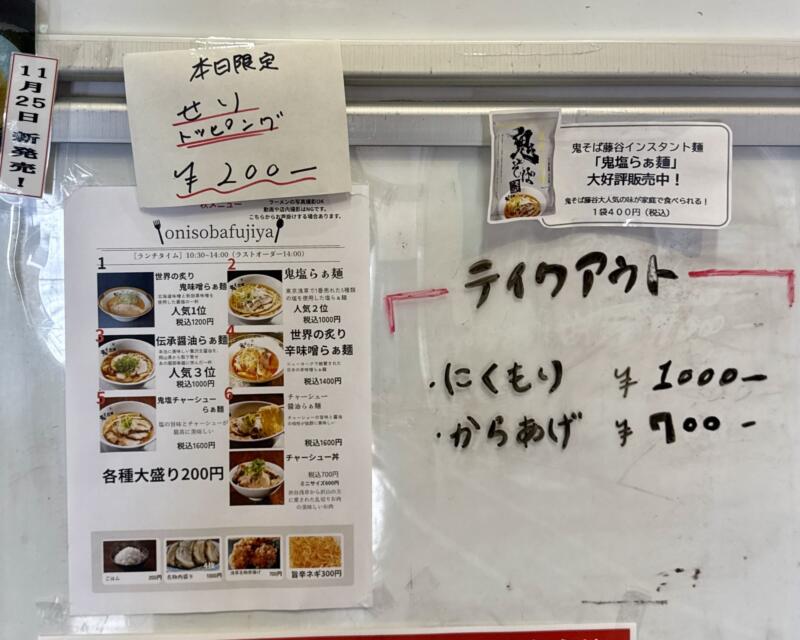 11月25日 新発売!
本日限定
せり
トッピング
¥200-
ラーメンの写真撮影OK
動画や店内撮影はNGです。
こちらからお声掛けする場合あります。
onisobafujiya
[ランチタイム] 10:30~14:00(ラストオーダー14:00)
1
世界の炙り
鬼味噌らぁ麺
人気1位
税込1200円
2
鬼塩らぁ麺
人気2位
税込1000円
3
伝承醤油らぁ麺
人気3位
税込1000円
4
世界の炙り
辛味噌らぁ麺
税込1400円
5
鬼塩チャーシュー
らぁ麺
塩の旨味とチャーシューが
最高に美味しい
税込1600円
6
チャーシュー
醤油らぁ麺
税込1600円
各種大盛り200円
チャーシュー丼
税込700円
ミニサイズ400円
ごはん 200円
名物肉盛り 4枚 1000円
700円
旨辛ネギ300円
鬼そば
鬼そば藤谷インスタント麺
「鬼塩らぁ麺」
大好評販売中!
鬼そば藤谷大人気の味が家庭で食べられる!
1袋400円(税込)
テイクアウト
・にくもり ¥1000-
・からあげ ¥700-